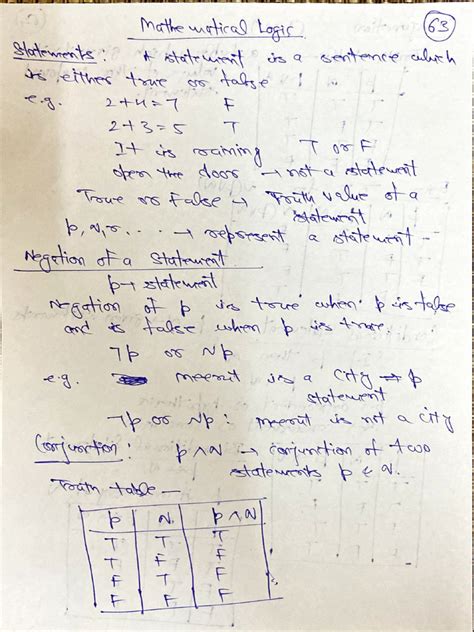 Mathematical Logic
63
Statements: A statement is a sentence which
is either true or false!
e.g. 2+4=7 F
2+3=5 T
It is raining T or F
open the door → not a statement
True or False → Truth value of a
statement
p, q, r. . . . → represent a statement -
Negation of a Statement
p → statement
Negation of p is true when p is false
and is false when p is true.
¬p or ~p
e.g. meerut is a city ⇒ p
statement
¬p or ~p : meerut is not a city
Conjunction: p ∧ q → conjunction of two
statements p & q.
Truth table —
p q p ∧ q
T T T
T F F
F T F
F F F